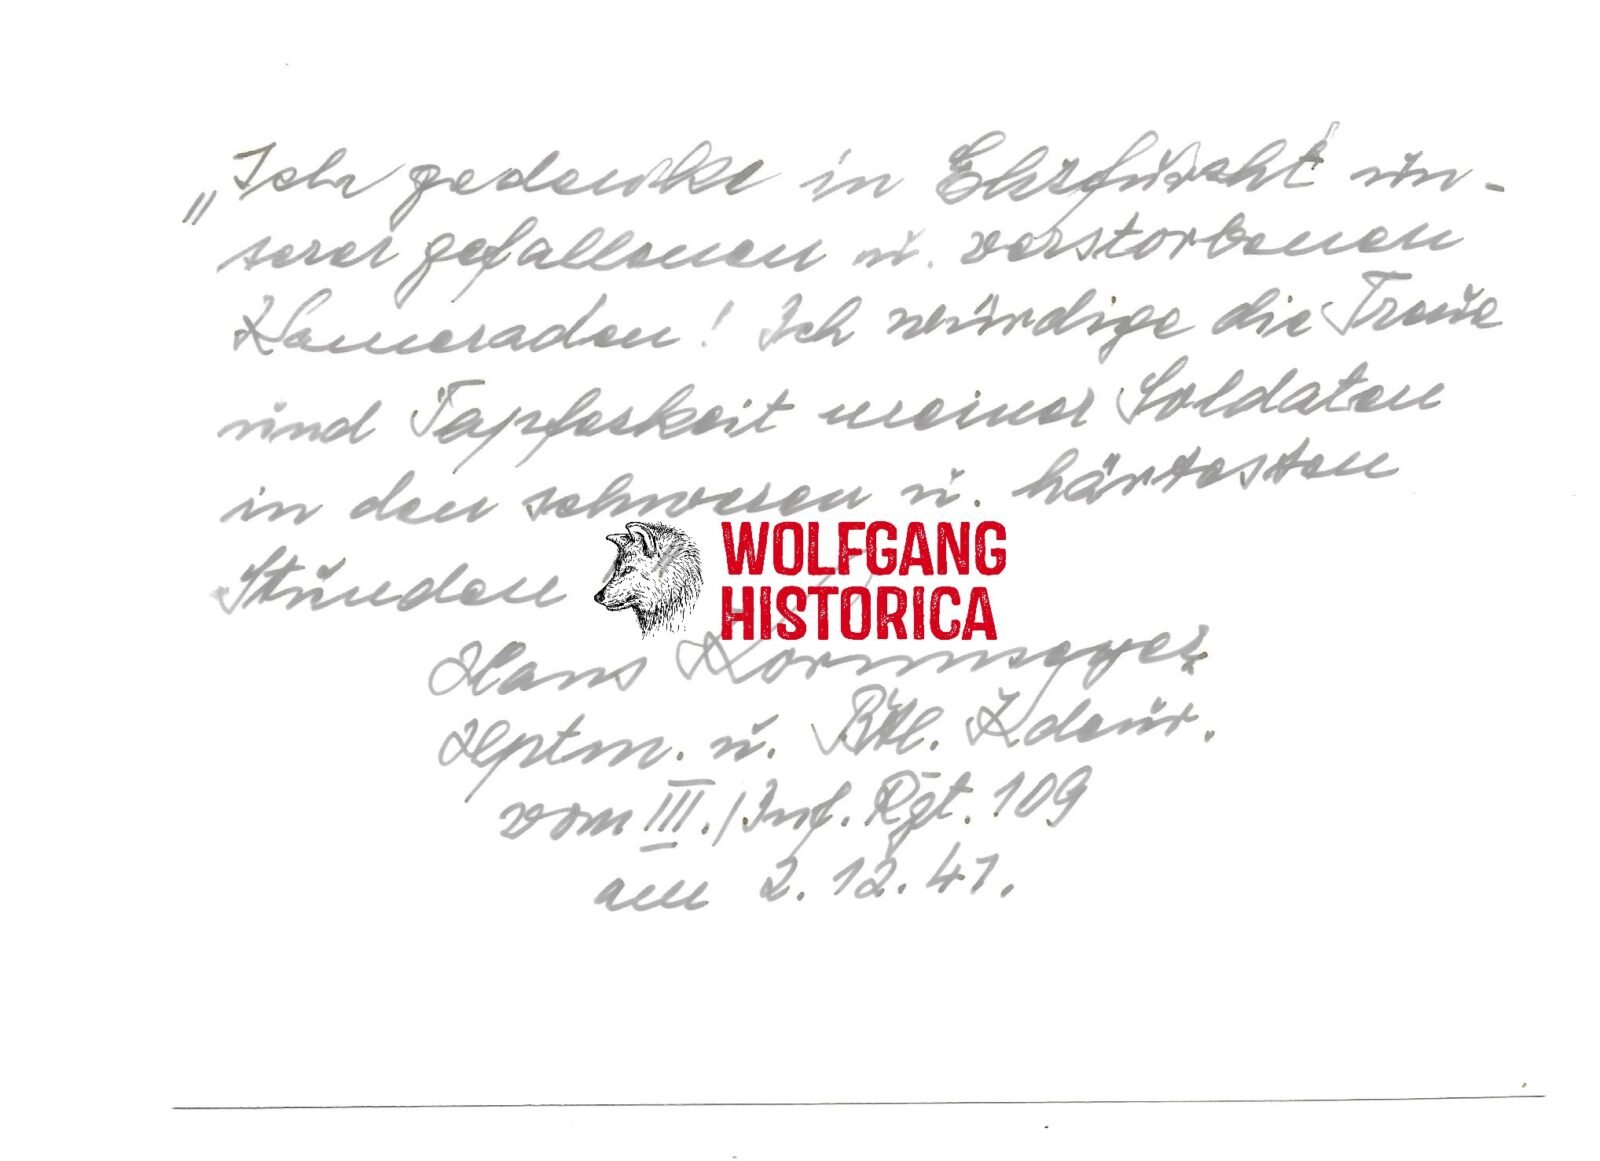 „Ich gedenke in Ehrfurcht un-
serer gefallenen u. verstorbenen
Kameraden! Ich würdige die Treue
und Tapferkeit meiner Soldaten
in den schweren u. härtesten
Stunden
WOLFGANG
HISTORICA
Hans Kornmeyer
Hptm. u. Btl. Kdeur.
vom III./Inf. Rgt. 109
am 2.12.41.